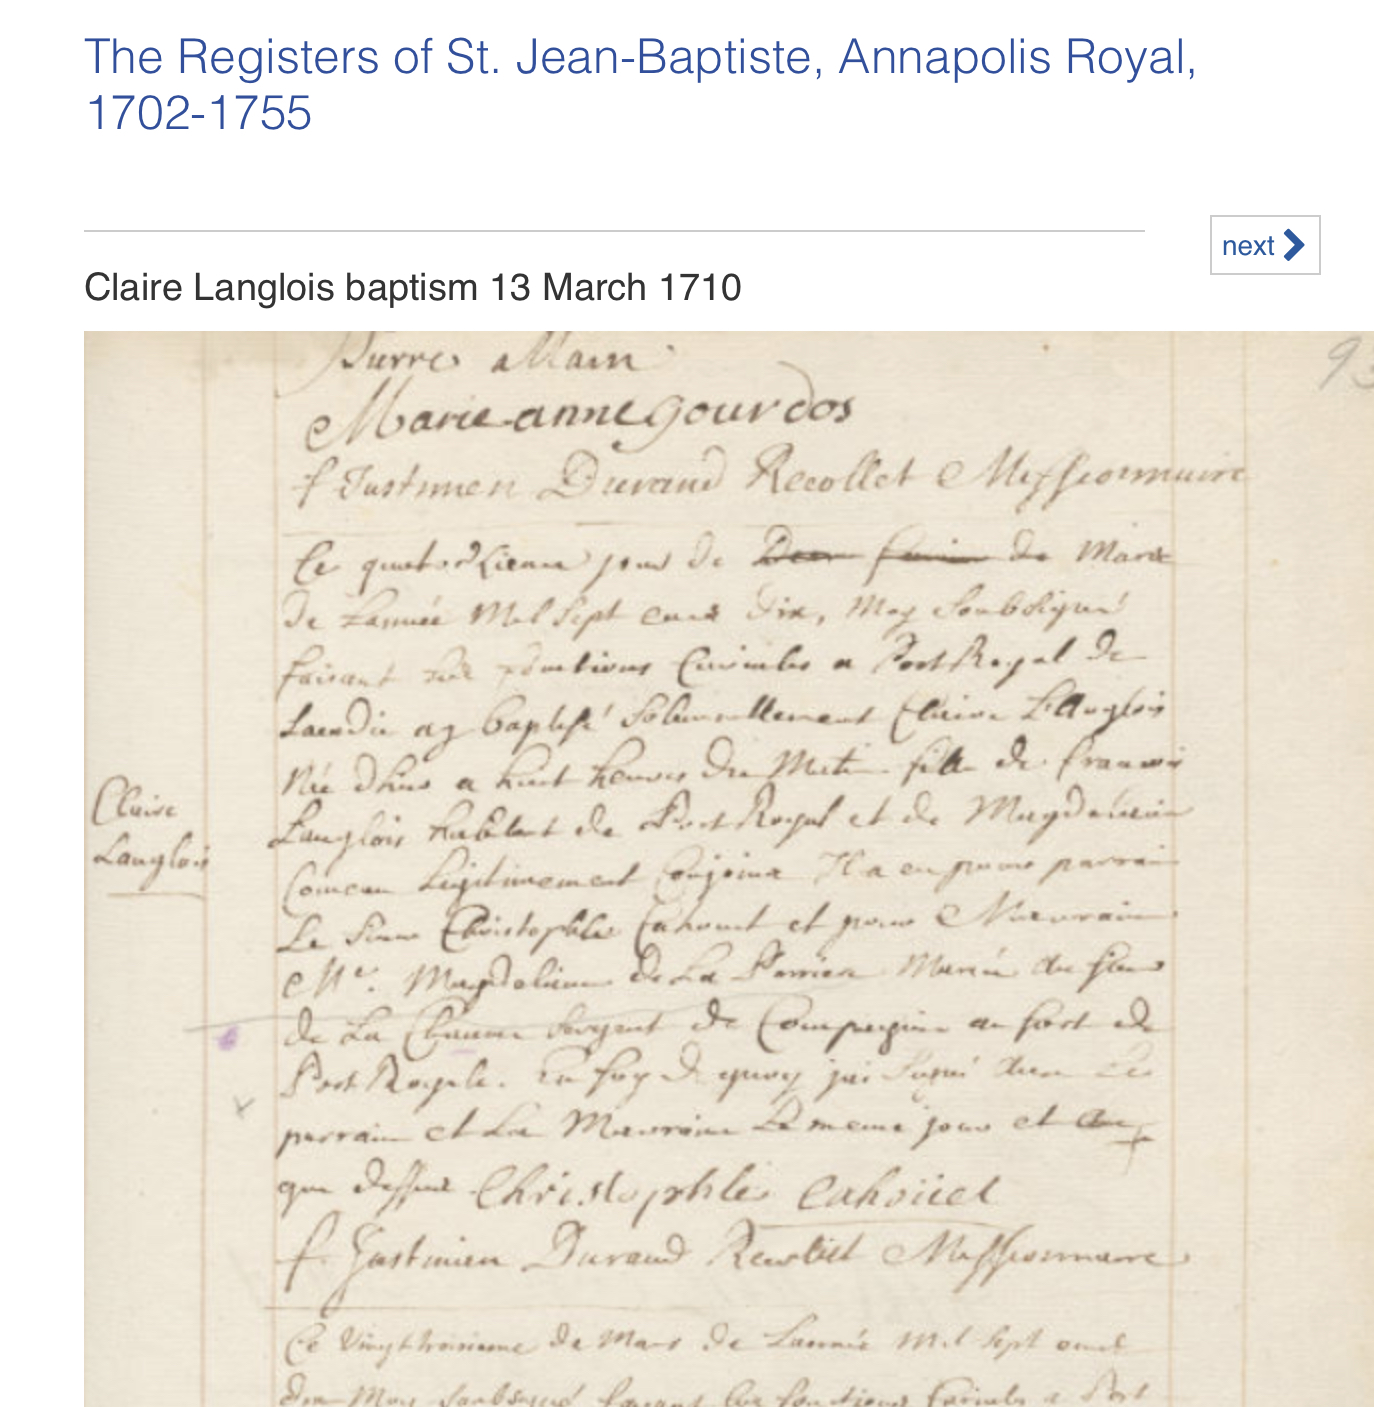 The Registers of St. Jean-Baptiste, Annapolis Royal,
1702-1755
next
Claire Langlois baptism 13 March 1710
Pierre allain
93
Marie-anne gourdos
f Justinien Durand Recollet Missionnaire
Ce jour de de
de Lannée Mil Sept cens dix, Moy Soubsigné
faisant les fonctions Curiales a Port Royal de
Lacadie ay baptisé Solennellement Claire LAnglois
Née a huit heures du Matin fille de francois
Claire
Langlois habitant de Port Royal et de Magdelaine
Langlois
Comeau Legitimement Conjoins Il a eu pour parrain
Le Sieur Christophle Cahouet et pour Marraine
Me. Magdelaine de La Mariée au sieur
de La Sergent de Compagnie au fort de
Port Royale. En foy de quoy jai Signé avec Le
parrain et La Marraine Le meme jour et an
que dessus Christophle Cahoüet
f. Justinien Durand Recollet Missionnaire
Ce Vingt troisieme de Mars de Lannée Mil Sept cent
Moy Soubsigné faisant les fonctions Curiales a Port